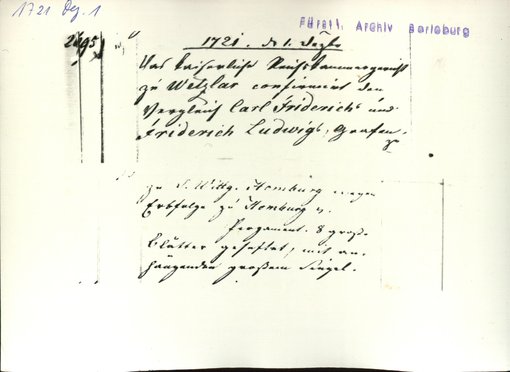 1721 Dez. 1
Fürstl. Archiv Berleburg
1721. d. 1. Dezbr
Das Kaiserliche Reichskammergericht
zu Wetzlar confirmirt den
Vergleich Carl Friderichs und
Friderich Ludwigs, Grafen
zu S. Wittg. Homburg wegen
Erbfolge zu Homburg
Pergament. 8 große
Blätter geheftet, mit an-
hängendem großem Siegel.